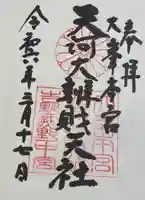 奉拝
大峯本宮
天河大辨財天社
令和六年三月十七日